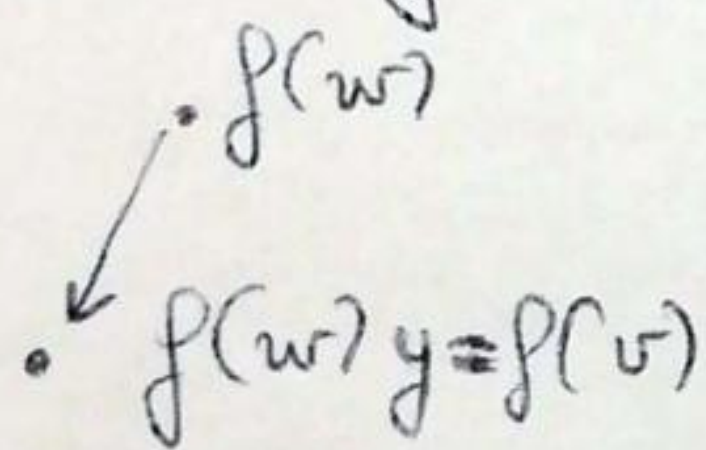 f(w)
f(w) y = f(v)